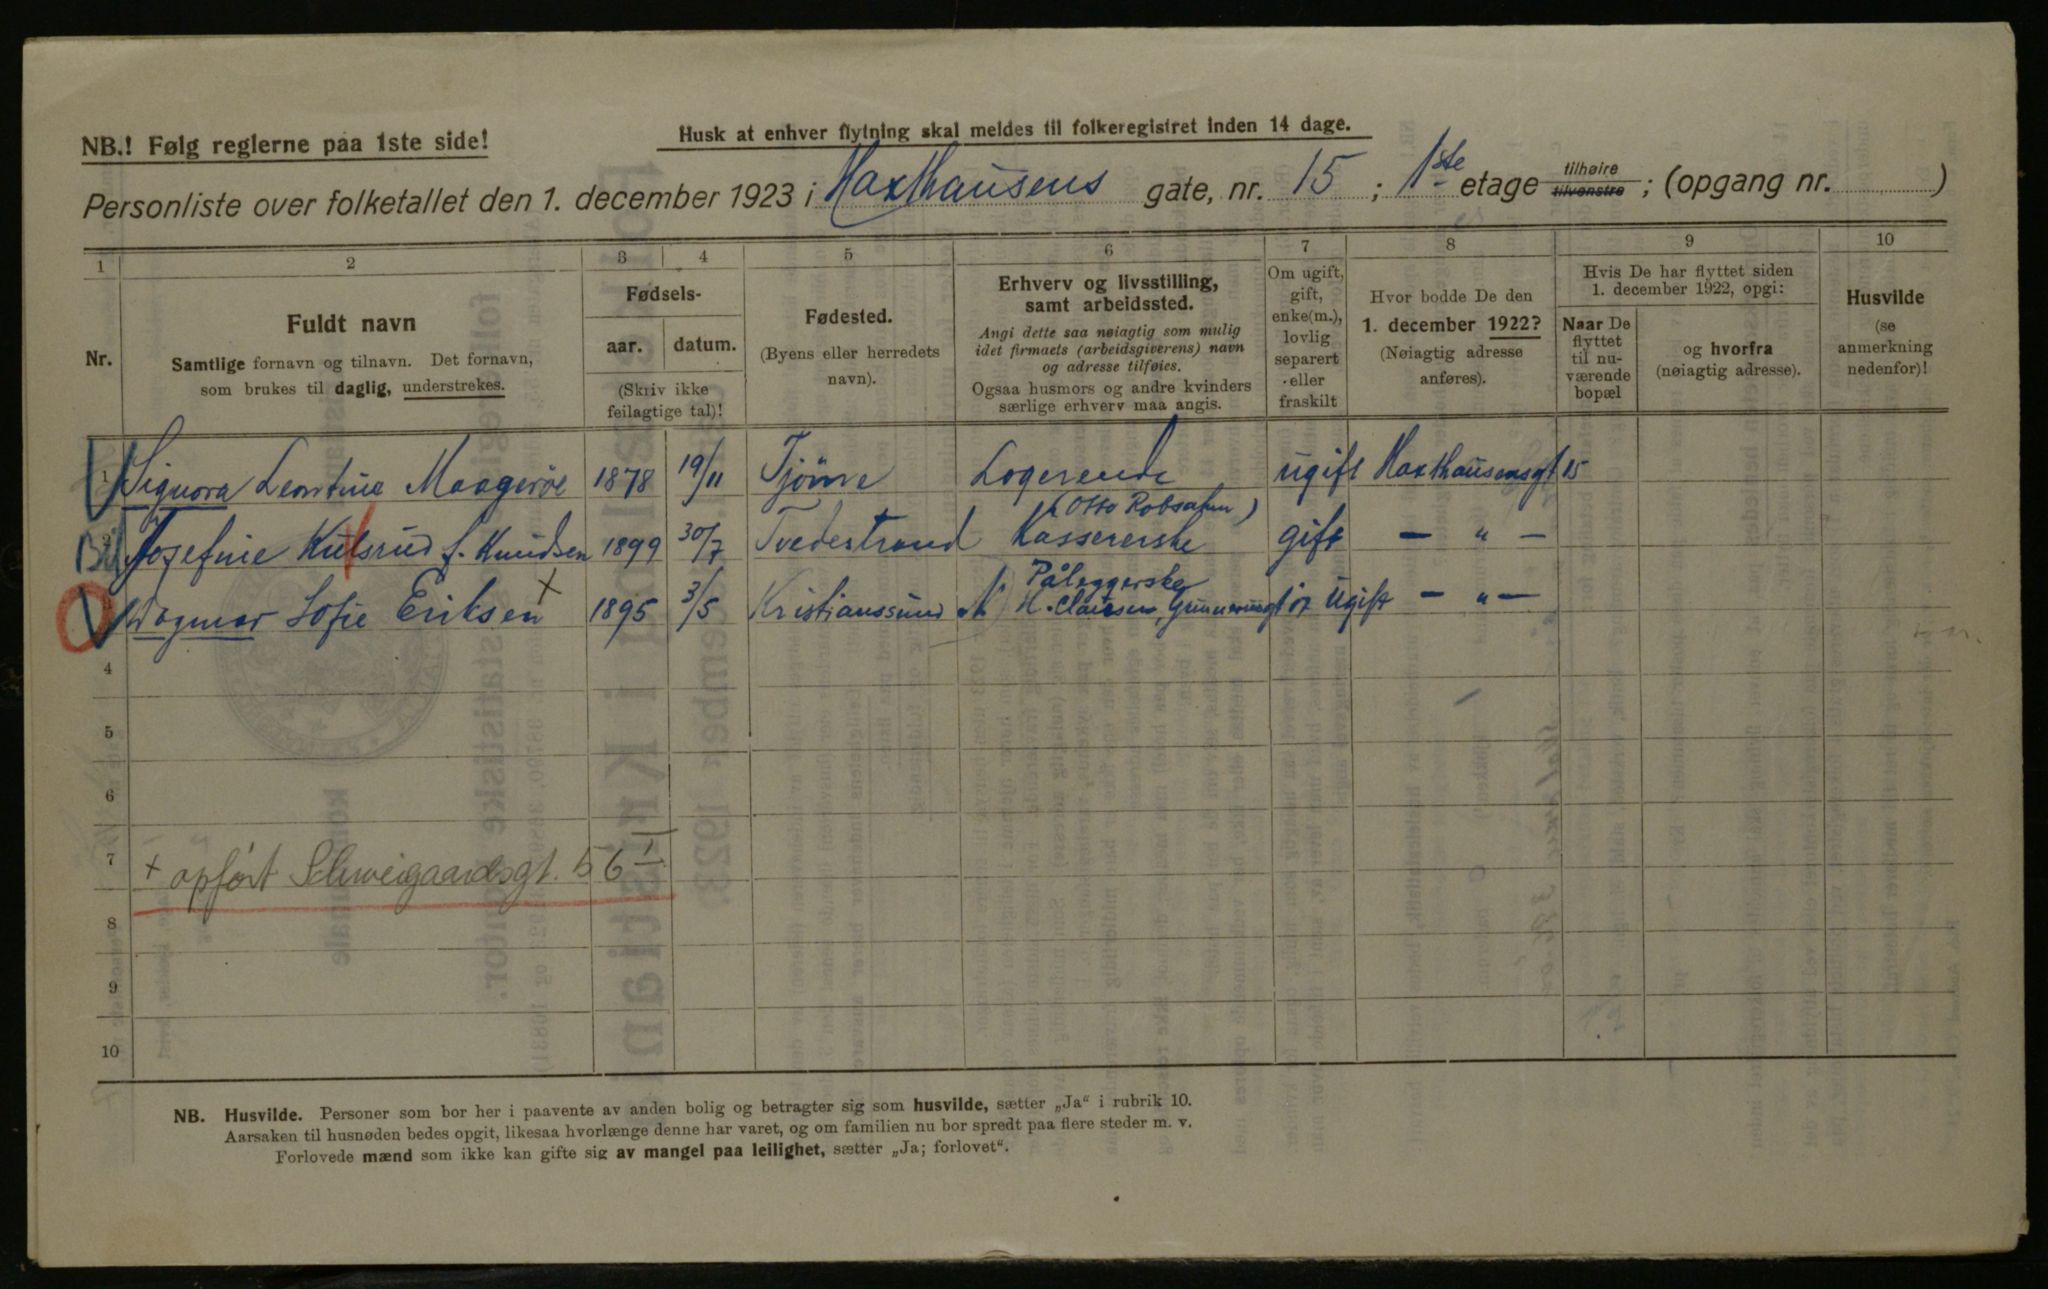 NB.! Følg reglerne paa 1ste side!
Husk at enhver flytning skal meldes til folkeregistret inden 14 dage.
Personliste over folketallet den 1. december 1923 i Haxthausens gate, nr. 15 ; 1ste etage tilhøire tilvenstre ; (opgang nr. )
1 2 3 4 5 6 7 8 9 10
Nr.
Fuldt navn
Samtlige fornavn og tilnavn. Det fornavn,
som brukes til daglig, understrekes.
Fødsels-
aar. datum.
(Skriv ikke
feilagtige tal)!
Fødested.
(Byens eller herredets
navn).
Erhverv og livsstilling,
samt arbeidssted.
Angi dette saa nøiagtig som mulig
idet firmaets (arbeidsgiverens) navn
og adresse tilføies.
Ogsaa husmors og andre kvinders
særlige erhverv maa angis.
Om ugift,
gift,
enke(m.),
lovlig
separert
eller
fraskilt
Hvor bodde De den
1. december 1922?
(Nøiagtig adresse
anføres).
Hvis De har flyttet siden
1. december 1922, opgi:
Naar De
flyttet
til nu-
værende
bopæl
og hvorfra
(nøiagtig adresse).
Husvilde
(se
anmerkning
nedenfor)!
1 Signora Leontine Maagerøe 1878 19/11 Tjöme Logerende ugift Haxthausensgt 15
(Otto Robsahm)
2 Josefine Kulsrud f. Knudsen 1899 30/7 Tvedestrand Kassererske gift — " —
Pålæggerske
3 Dagmar Sofie Eriksen × 1895 3/5 Kristianssund N H. Clausen, ugift — " —
4
5
6
7 × opført Schweigaardsgt. 56 I
8
9
10
NB. Husvilde. Personer som bor her i paavente av anden bolig og betragter sig som husvilde, sætter „Ja“ i rubrik 10.
Aarsaken til husnøden bedes opgit, likesaa hvorlænge denne har varet, og om familien nu bor spredt paa flere steder m. v.
Forlovede mænd som ikke kan gifte sig av mangel paa leilighet, sætter „Ja; forlovet“.